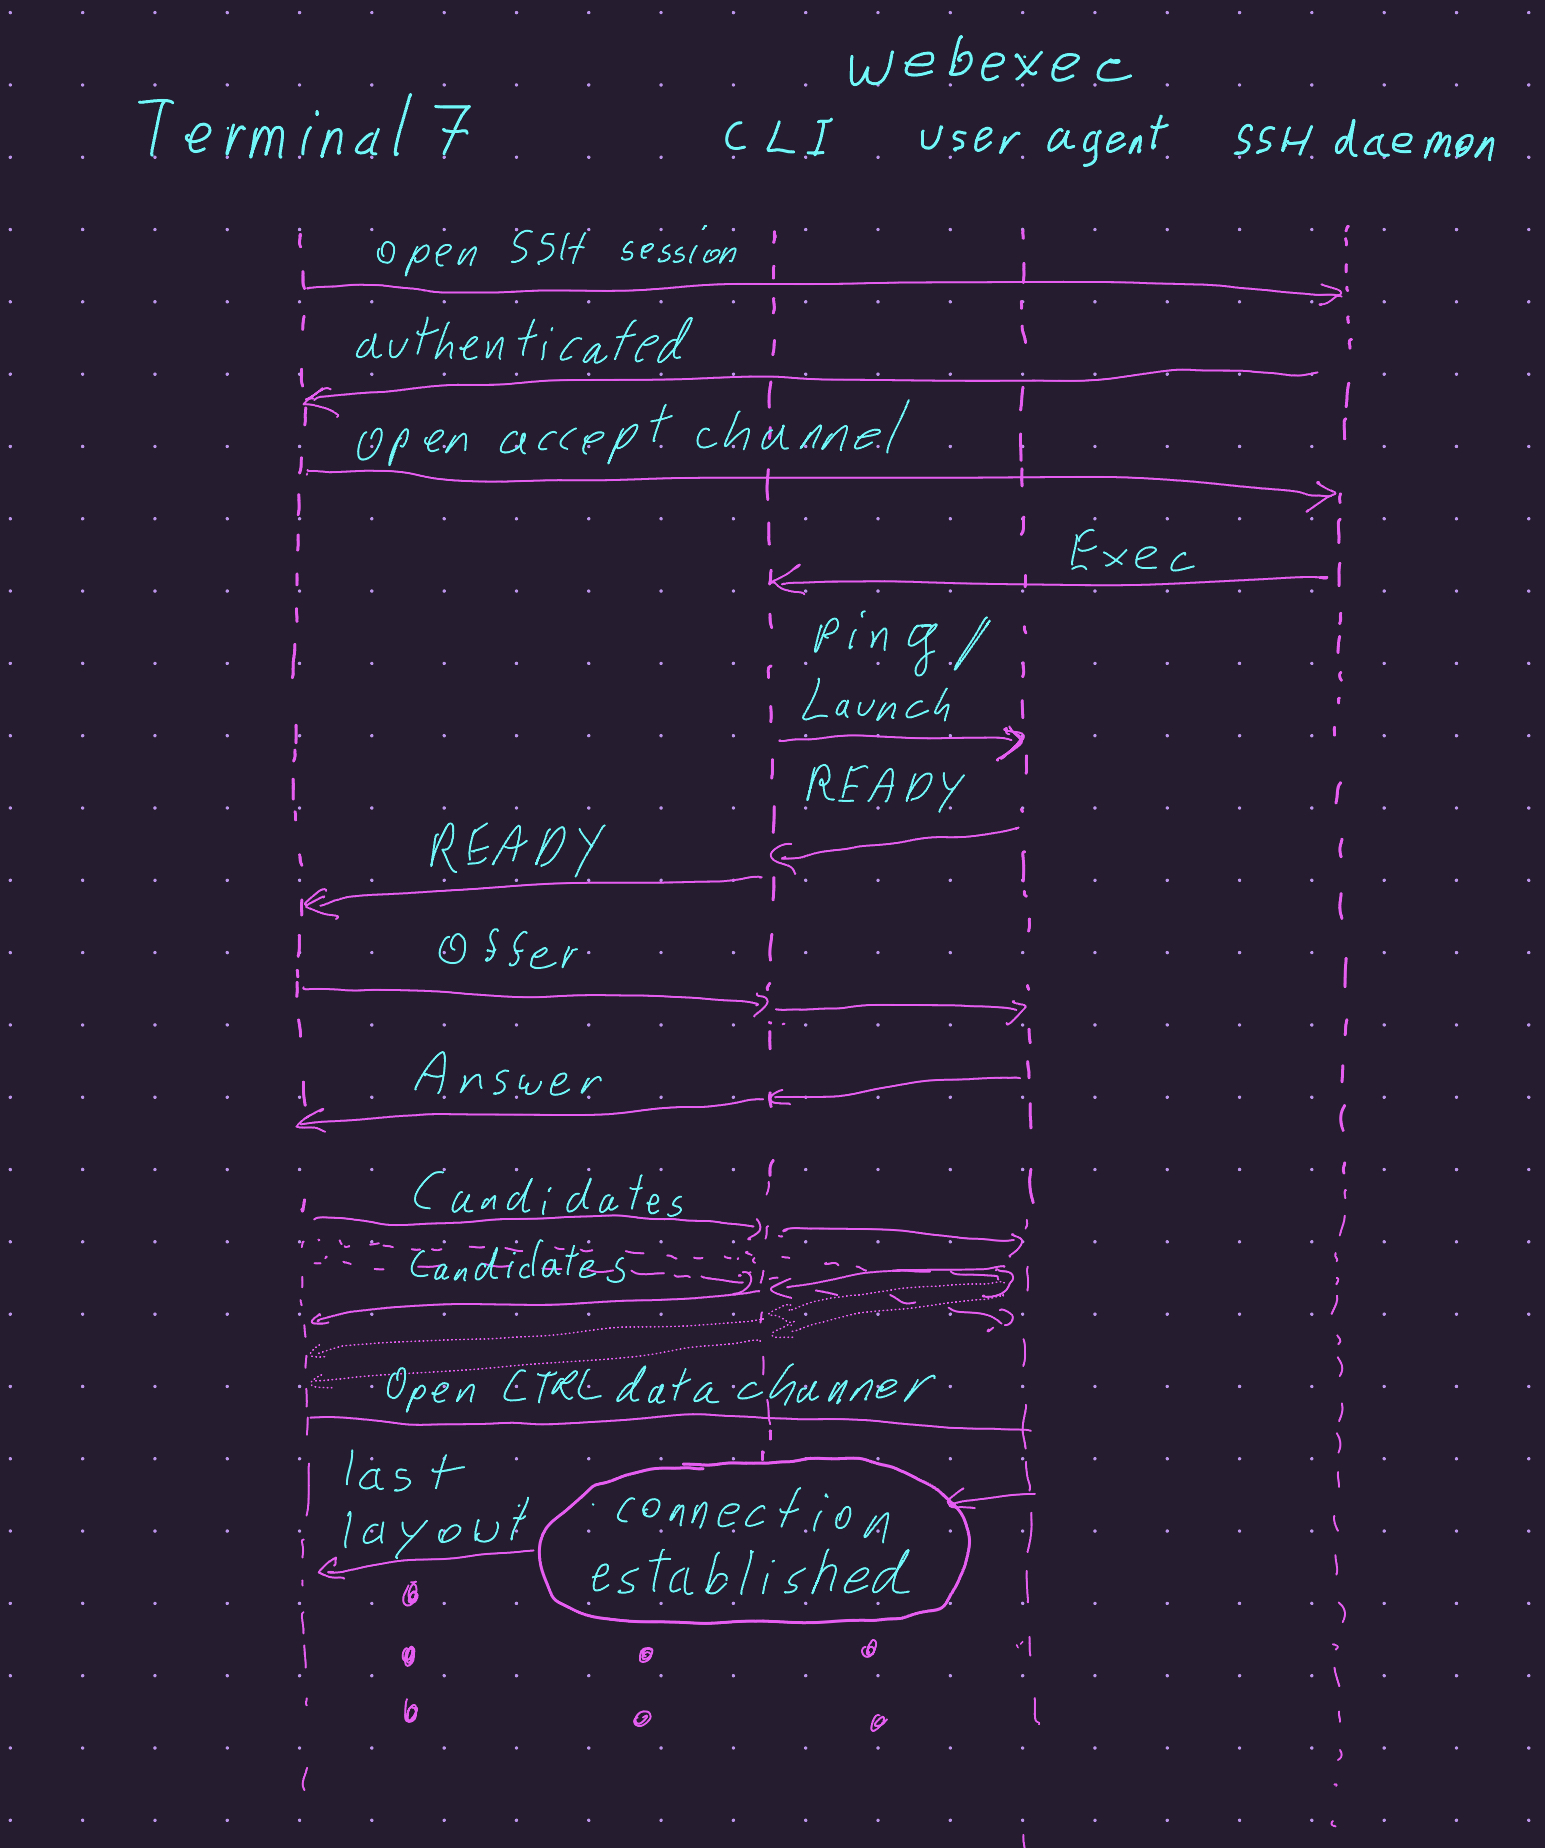 webexec
Terminal 7 CLI user agent SSH daemon
open SSH session
authenticated
open accept channel
Exec
Ping/
Launch
READY
READY
Offer
Answer
Candidates
Candidates
Open CTRL data channer
last
layout
connection
established